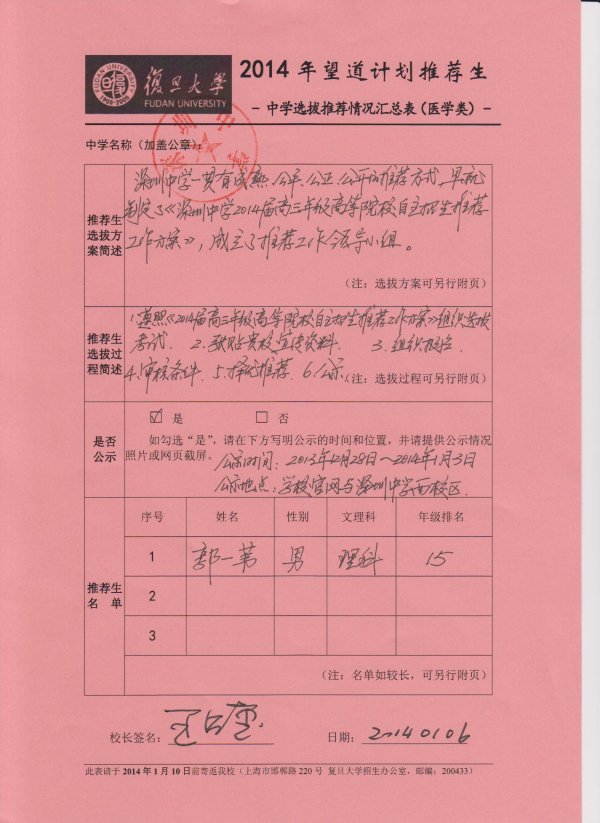 復旦大學
FUDAN UNIVERSITY
2014年望道计划推荐生
- 中学选拔推荐情况汇总表（医学类）-
中学名称（加盖公章）：
推荐生选拔方案简述
深圳中学一贯有成熟、公平、公正、公开的推荐方式，早就
制定了《深圳中学2014届高三年级高等院校自主招生推荐
工作方案》，成立了推荐工作领导小组。
（注：选拔方案可另行附页）
推荐生选拔过程简述
1.遵照《2014届高三年级高等院校自主招生推荐工作方案》组织选拔
考试. 2.张贴贵校宣传资料. 3.组织报名.
4.审核条件. 5.择优推荐. 6.公示
（注：选拔过程可另行附页）
是否公示
☑ 是 □ 否
如勾选“是”，请在下方写明公示的时间和位置，并请提供公示情况
照片或网页截屏。
公示时间：2013年12月28日～2014年1月3日
公示地点：学校官网与深圳中学西校区.
推荐生名单
序号 姓名 性别 文理科 年级排名
1 郭一苇 男 理科 15
2
3
（注：名单如较长，可另行附页）
校长签名： 日期：20140106
此表请于2014年1月10日前寄返我校（上海市邯郸路220号 复旦大学招生办公室，邮编：200433）